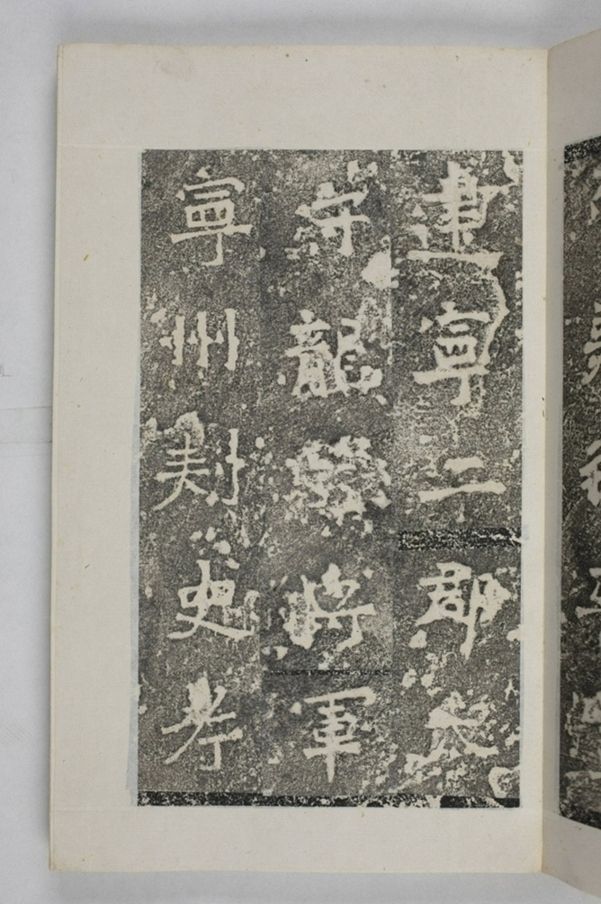 建寧二郡太
守龍驤將軍
寧州刾史考